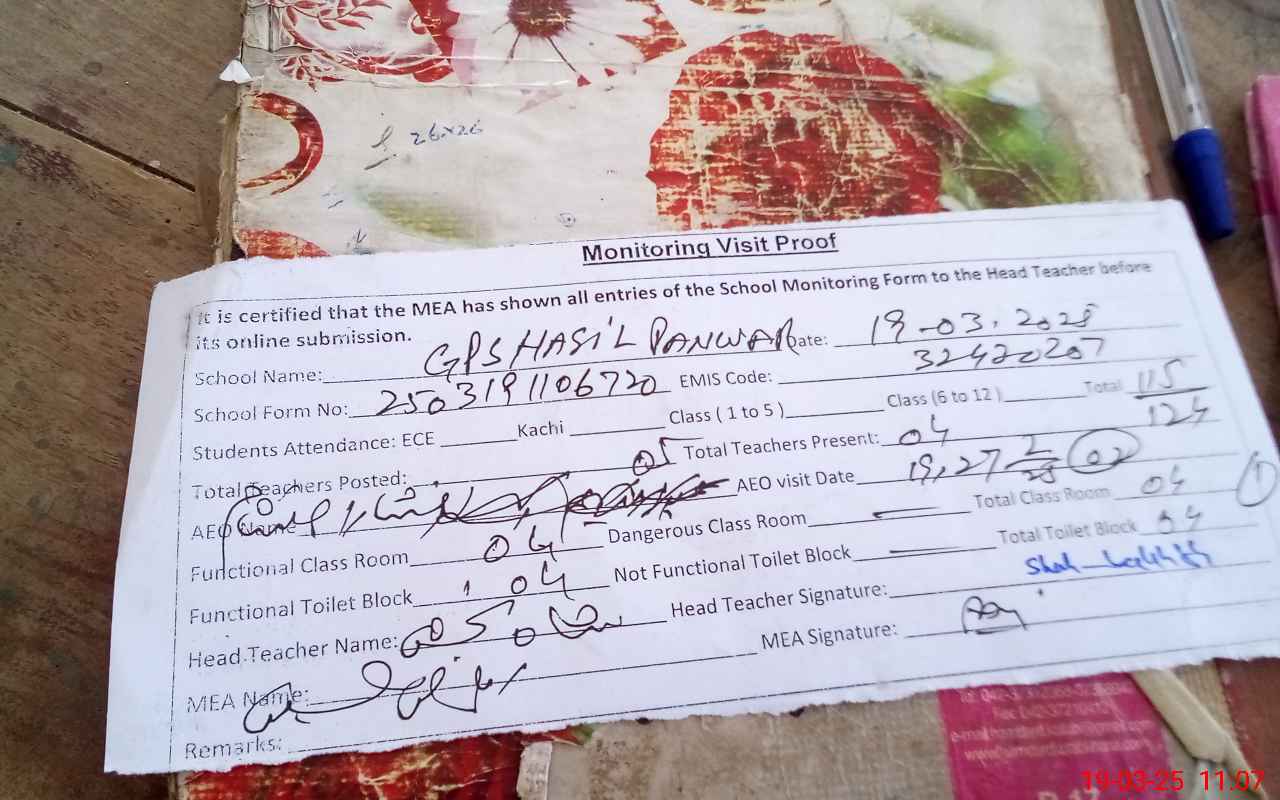 26x26
Monitoring Visit Proof
It is certified that the MEA has shown all entries of the School Monitoring Form to the Head Teacher before
its online submission.
School Name: GPS HASIL PANWAR Date: 19-03-2025
School Form No: 2503191106720 EMIS Code: 32420207
Students Attendance: ECE Kachi Class ( 1 to 5 ) Class (6 to 12 ) Total 115
124
Total Teachers Posted: 05 Total Teachers Present: 04
AEO Name AEO visit Date 19,27 2/25 02
Functional Class Room 04 Dangerous Class Room Total Class Room 04 1
Functional Toilet Block 04 Not Functional Toilet Block Total Toilet Block 04
Head Teacher Name: Head Teacher Signature:
MEA Name: MEA Signature:
Remarks:
19-03-25 11:07